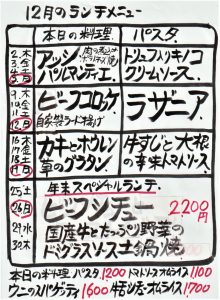 12月のランチメニュー
本日の料理 パスタ
2 木
3 金
4 土
5 日
アッシ
パルマンティエ
トリュフ入リキノコ
クリームソース
9 木
10 金
11 土
12 日
ビーフコロッケ
自家製ラード揚げ
ラザニア
16 木
17 金
18 土
19 日
カキとホウレン
草のグラタン
牛すじと大根
の辛味トマトソース
25 土
26 日
29 水
30 木
年末スペシャルランチ
ビーフシチュー 2,200円
国産牛とたっぷり野菜の
ドミグラスソース土鍋焼
本日の料理 パスタ1200 トマトソースオムライス1100
ウニのスパゲティ1600 牛タンシチューオムライス1700